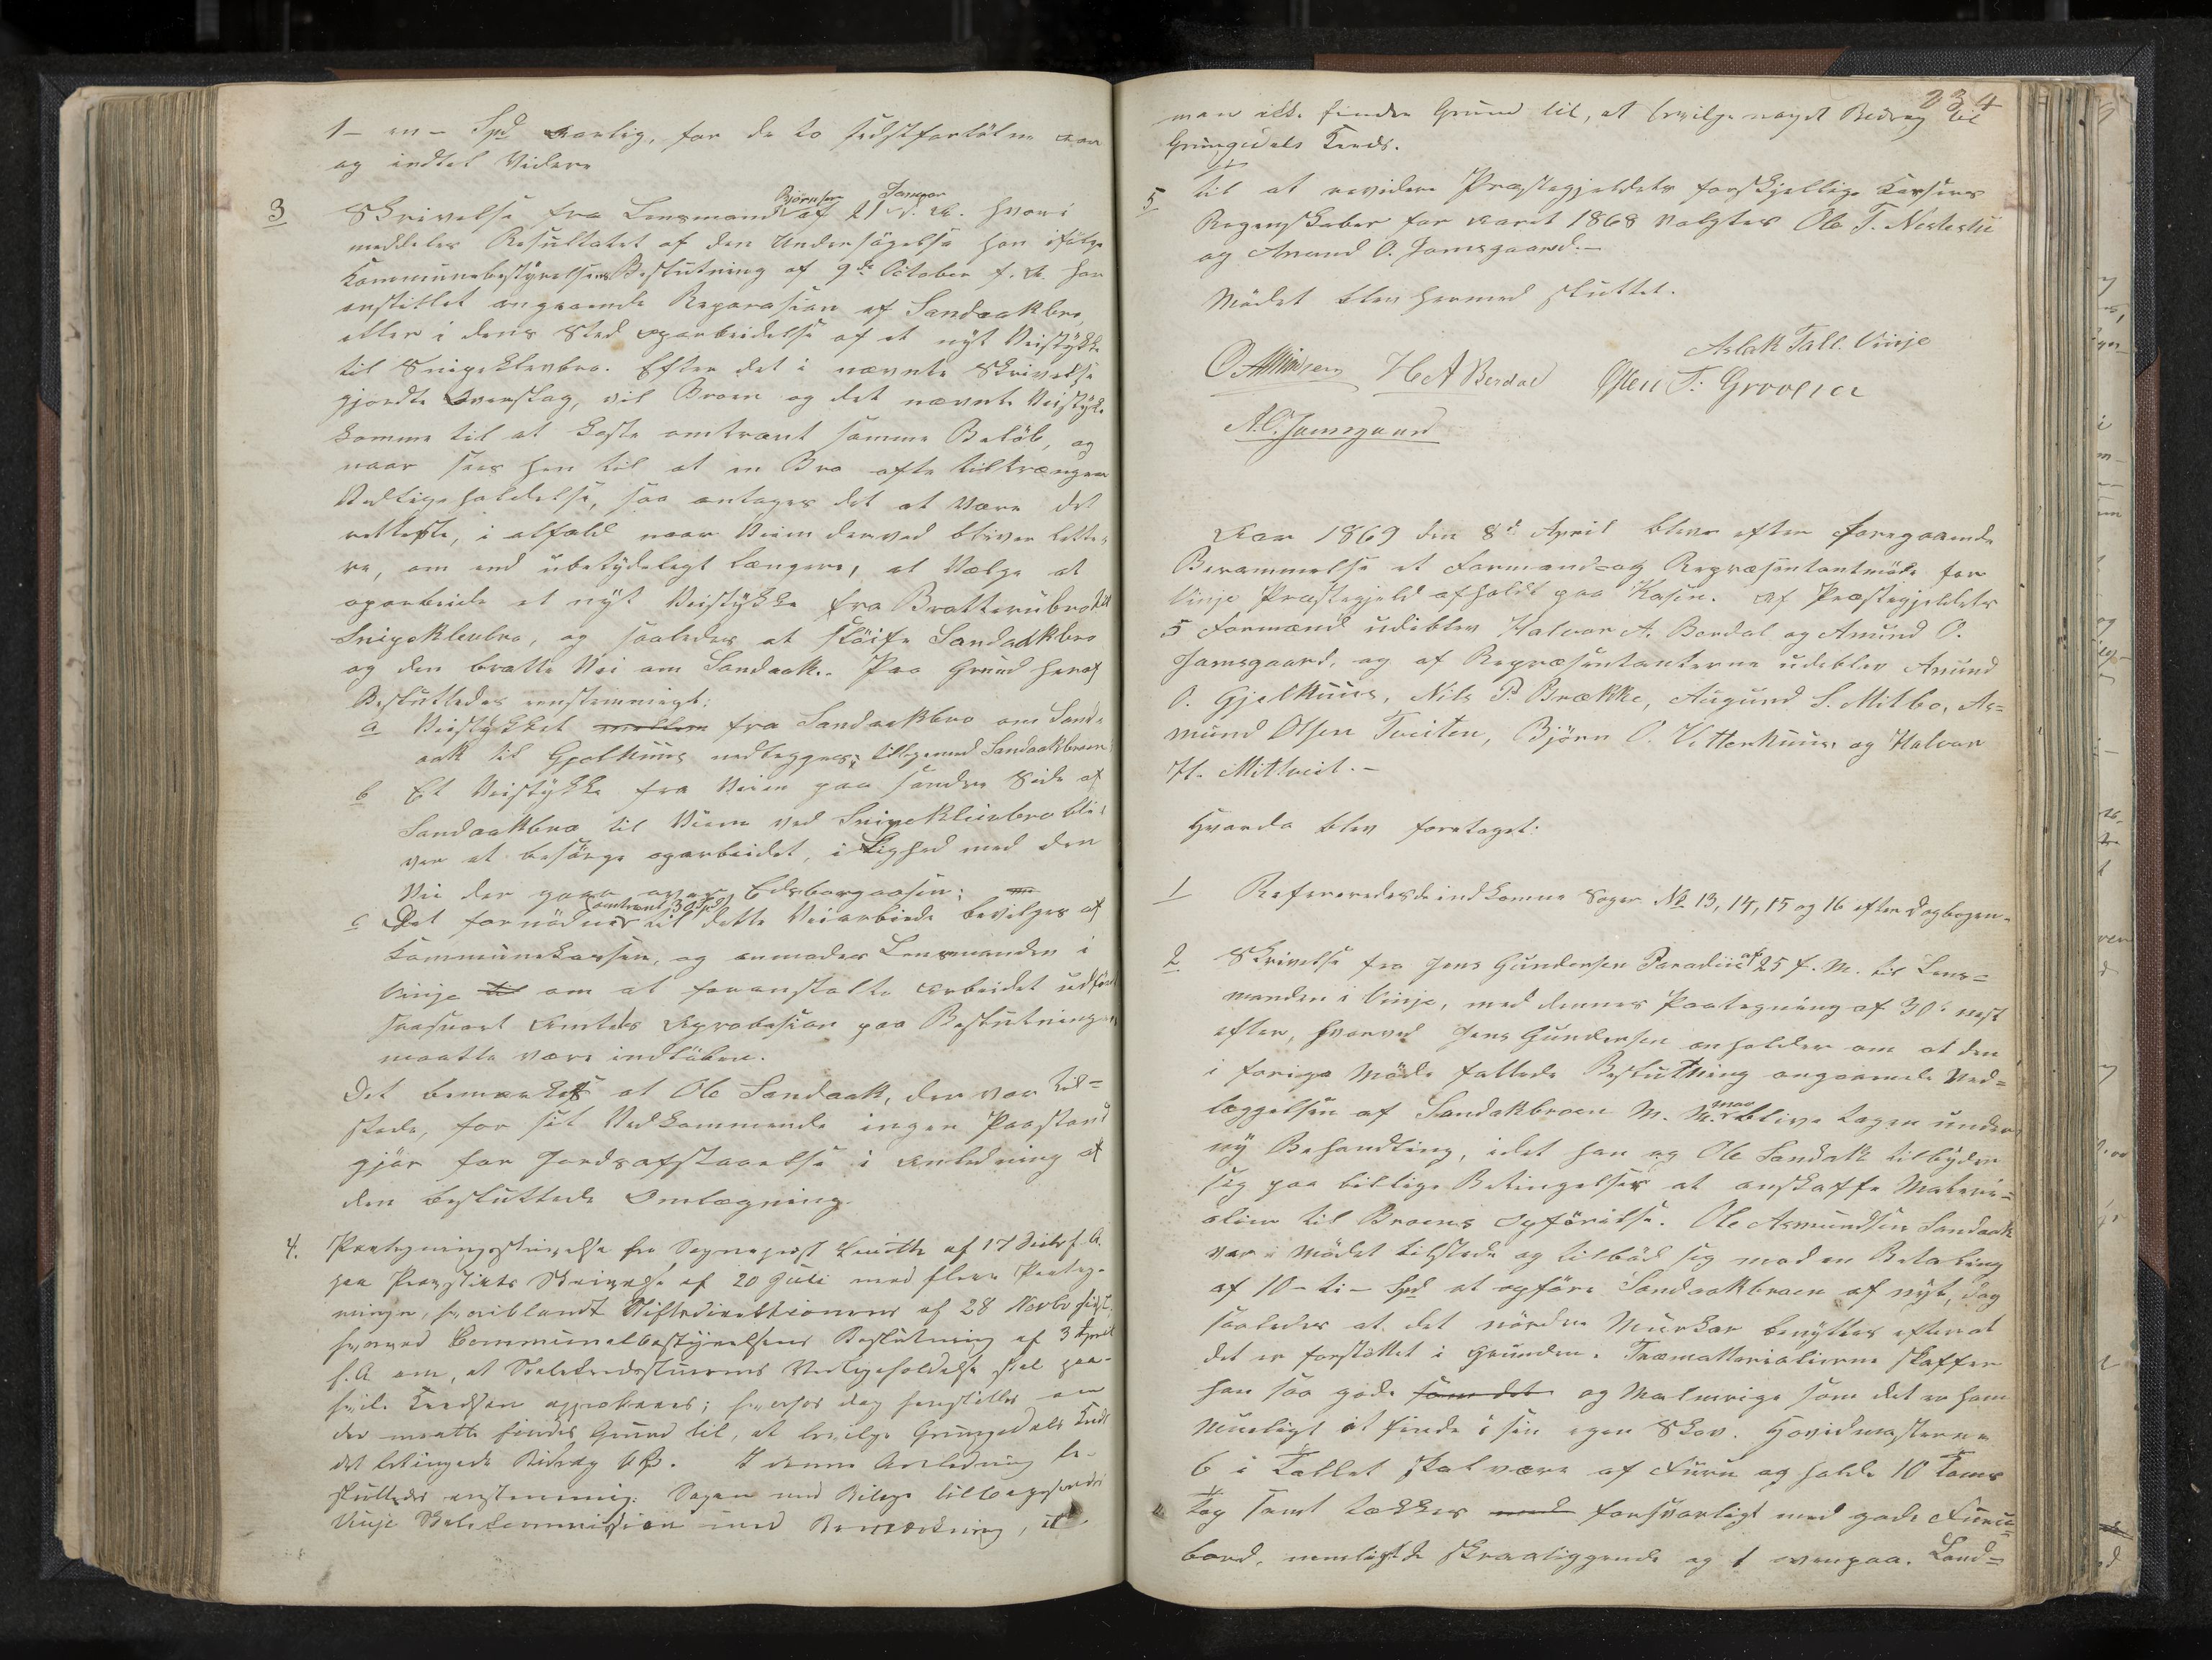 1 - en - Spd aarlig, for de to sidstforløbne Aar
og indtil Videre
3 Skrivelse fra Lensmand Bjørnsen af 21 Januar d. A. hvori
meddeles Resultatet af den Undersøgelse han ifølge
Kommunebestyrelsens Beslutning af 9de October f. A. har
anstillet angaaende Reparasion af Sandaakbro,
eller i dens Sted oparbeidelse af et nyt Veistykke
til Snipeklevbro. Efter det i nævnte Skrivelse
gjordte Overslag, vil Broen og det nævnte Veistykke
komme til at koste omtrent samme Beløb, og
naar sees hen til at en Bro ofte tiltrænger
Vedligeholdelse, saa antages det at være det
retteste, i alfald naar Veien derved bliver lette-
re, om end ubetydeligt længere, at Vælge at
oparbeide et nyt Veistykke fra Bratterubro til
Snipeklevbro, og saaledes at sløife Sandaakbro
og den bratte Vei om Sandaak. Paa Grund heraf
Besluttedes eenstemmigt:
a Veistykket mellem fra Sandaakbro om Sand-
aak til Gjelhuus nedlegges; tilligemed Sandaakbroen;
b Et Veistykke fra Veien paa søndre Side af
Sandaakbro til Veien ved Snipeklevbro bli-
ver at besørge oparbeidet, i Lighed med den
Vei der gaar over Edsborgaasen;
c Det fornødne (omtrent 30 Spd) til dette Veiarbeide bevilges af
Kommunekassen, og anmodes Lensmanden i
Vinje til om at foranstalte Arbeidet udført
saasnart Amtets Aprobasion paa Beslutningen
maatte være indløben.
Det bemærkes at Ole Sandaak, der var til-
stede, for sit Vedkommende ingen Paastand
gjør for Jordsafstaaelse i Anledning af
den besluttede Omlægning.
4. Paategningsskrivelse fra Sogneprest af 17 f. A.
paa Provstiets Skrivelse af 20 Juli med flere Paateg-
ninger, hvoriblandt Stiftsdirektionens af 28 Novbr sidst.
hvorved Communalbestyrelsens Beslutning af 3 April
f. A. om, at Vedligeholdelse skal paa-
hvile Kredsen approberes; hvorhos dog henstilles om
der maatte findes Grund til, at bevilge Grungedals Kreds
det betingede Bidrag. I denne Anledning be-
sluttedes enstemmig: Sagen med Bilage tilbagesendes
Vinje Skolekommission med Bemærkning, at
234
man ikke finder Grund til, at bevilge noget Bidrag til
Grungedals Kreds.
5 Til at revidere Præstegjeldets forskjellige Kassers
Regenskaber for Aaret 1868 valgtes Ole T. Nesteslie
og Amund O. Jamsgaard. -
Mødet blev hermed sluttet.
Aslak Tall. Vinje
H A Berdal Østen T: Grovenn
A. O. Jamsgaard
Aar 1869 den 8de April blev efter foregaaende
Berammelse et Formands og Repræsentantmøde for
Vinje Præstegjeld afholdt paa Kasin. Af Præstegjeldets
5 Formænd udeblev Halvor A. Berdal og Amund O.
Jamsgaard, og af Repræsentanterne udeblev Amund
O. Gjelhuus, Nils P. Brække, Augund S. Mitbø, As=
mund Olsen Tveiten, Bjørn O. Vitterhuus og Halvor
H. Mittveit. -
Hvorda blev foretaget:
1 Refereredes de indkomne Sager No 13, 14, 15 og 16 efter Dagbogen.
2 Skrivelse fra Jens Gundersen Paradiis af 25 f. M. til Lens=
manden i Vinje, med dennes Paategning af 30te næst
efter, hvorved Jens Gundersen anholder om at den
i forige Møde fattede Beslutning angaaende Ned=
læggelsen af Sandakbroen m. M. maa blive tagen under
ny Behandling, idet han og Ole Sandak tilbyder
sig paa billige Betingelser at anskaffe Materi=
alier til Broens Opførelse. Ole Asmundsen Sandaak
var i Mødet tilstede og tilbød sig mod en Betaling
af 10 - ti - Spd at opføre Sandaakbroen af nyt, dog
saaledes at det nordre Murkar benyttes efterat
det er forstøttet i Grunden. Træmatterialierne skaffer
han saa gode som det og Malmrige som det er ham
Mueligt at finde i sin egen Skov. Hovidmasterne
6 i Tallet skal være af Furu og holde 10 Toms
Top samt dækkes med forsvarligt med gode Furu=
bord, nemligt 2 skraaliggende og 1 ovenpaa. Land=